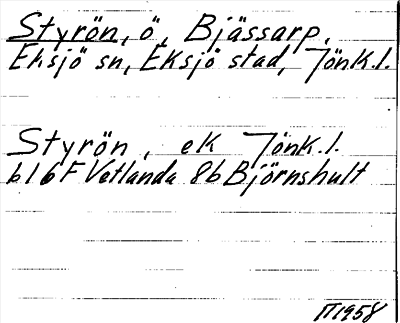 Styrön, ö, Bjässarp,
Eksjö sn, Eksjö stad, Jönk.l.
Styrön, ek Jönk.l.
b16F Vetlanda 8b Björnshult
1958